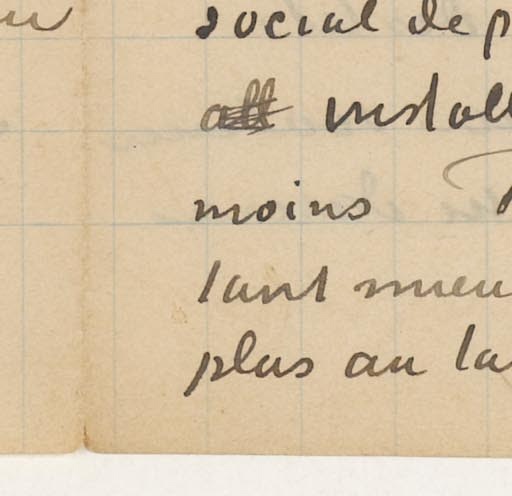 social de p
install
moins
tant mieu
plus au la